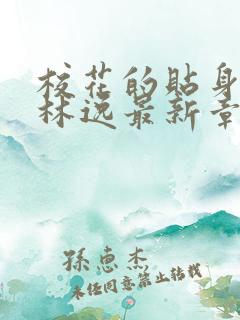 校花的贴身
林逸最新章
孫惠杰
未经同意禁止转载